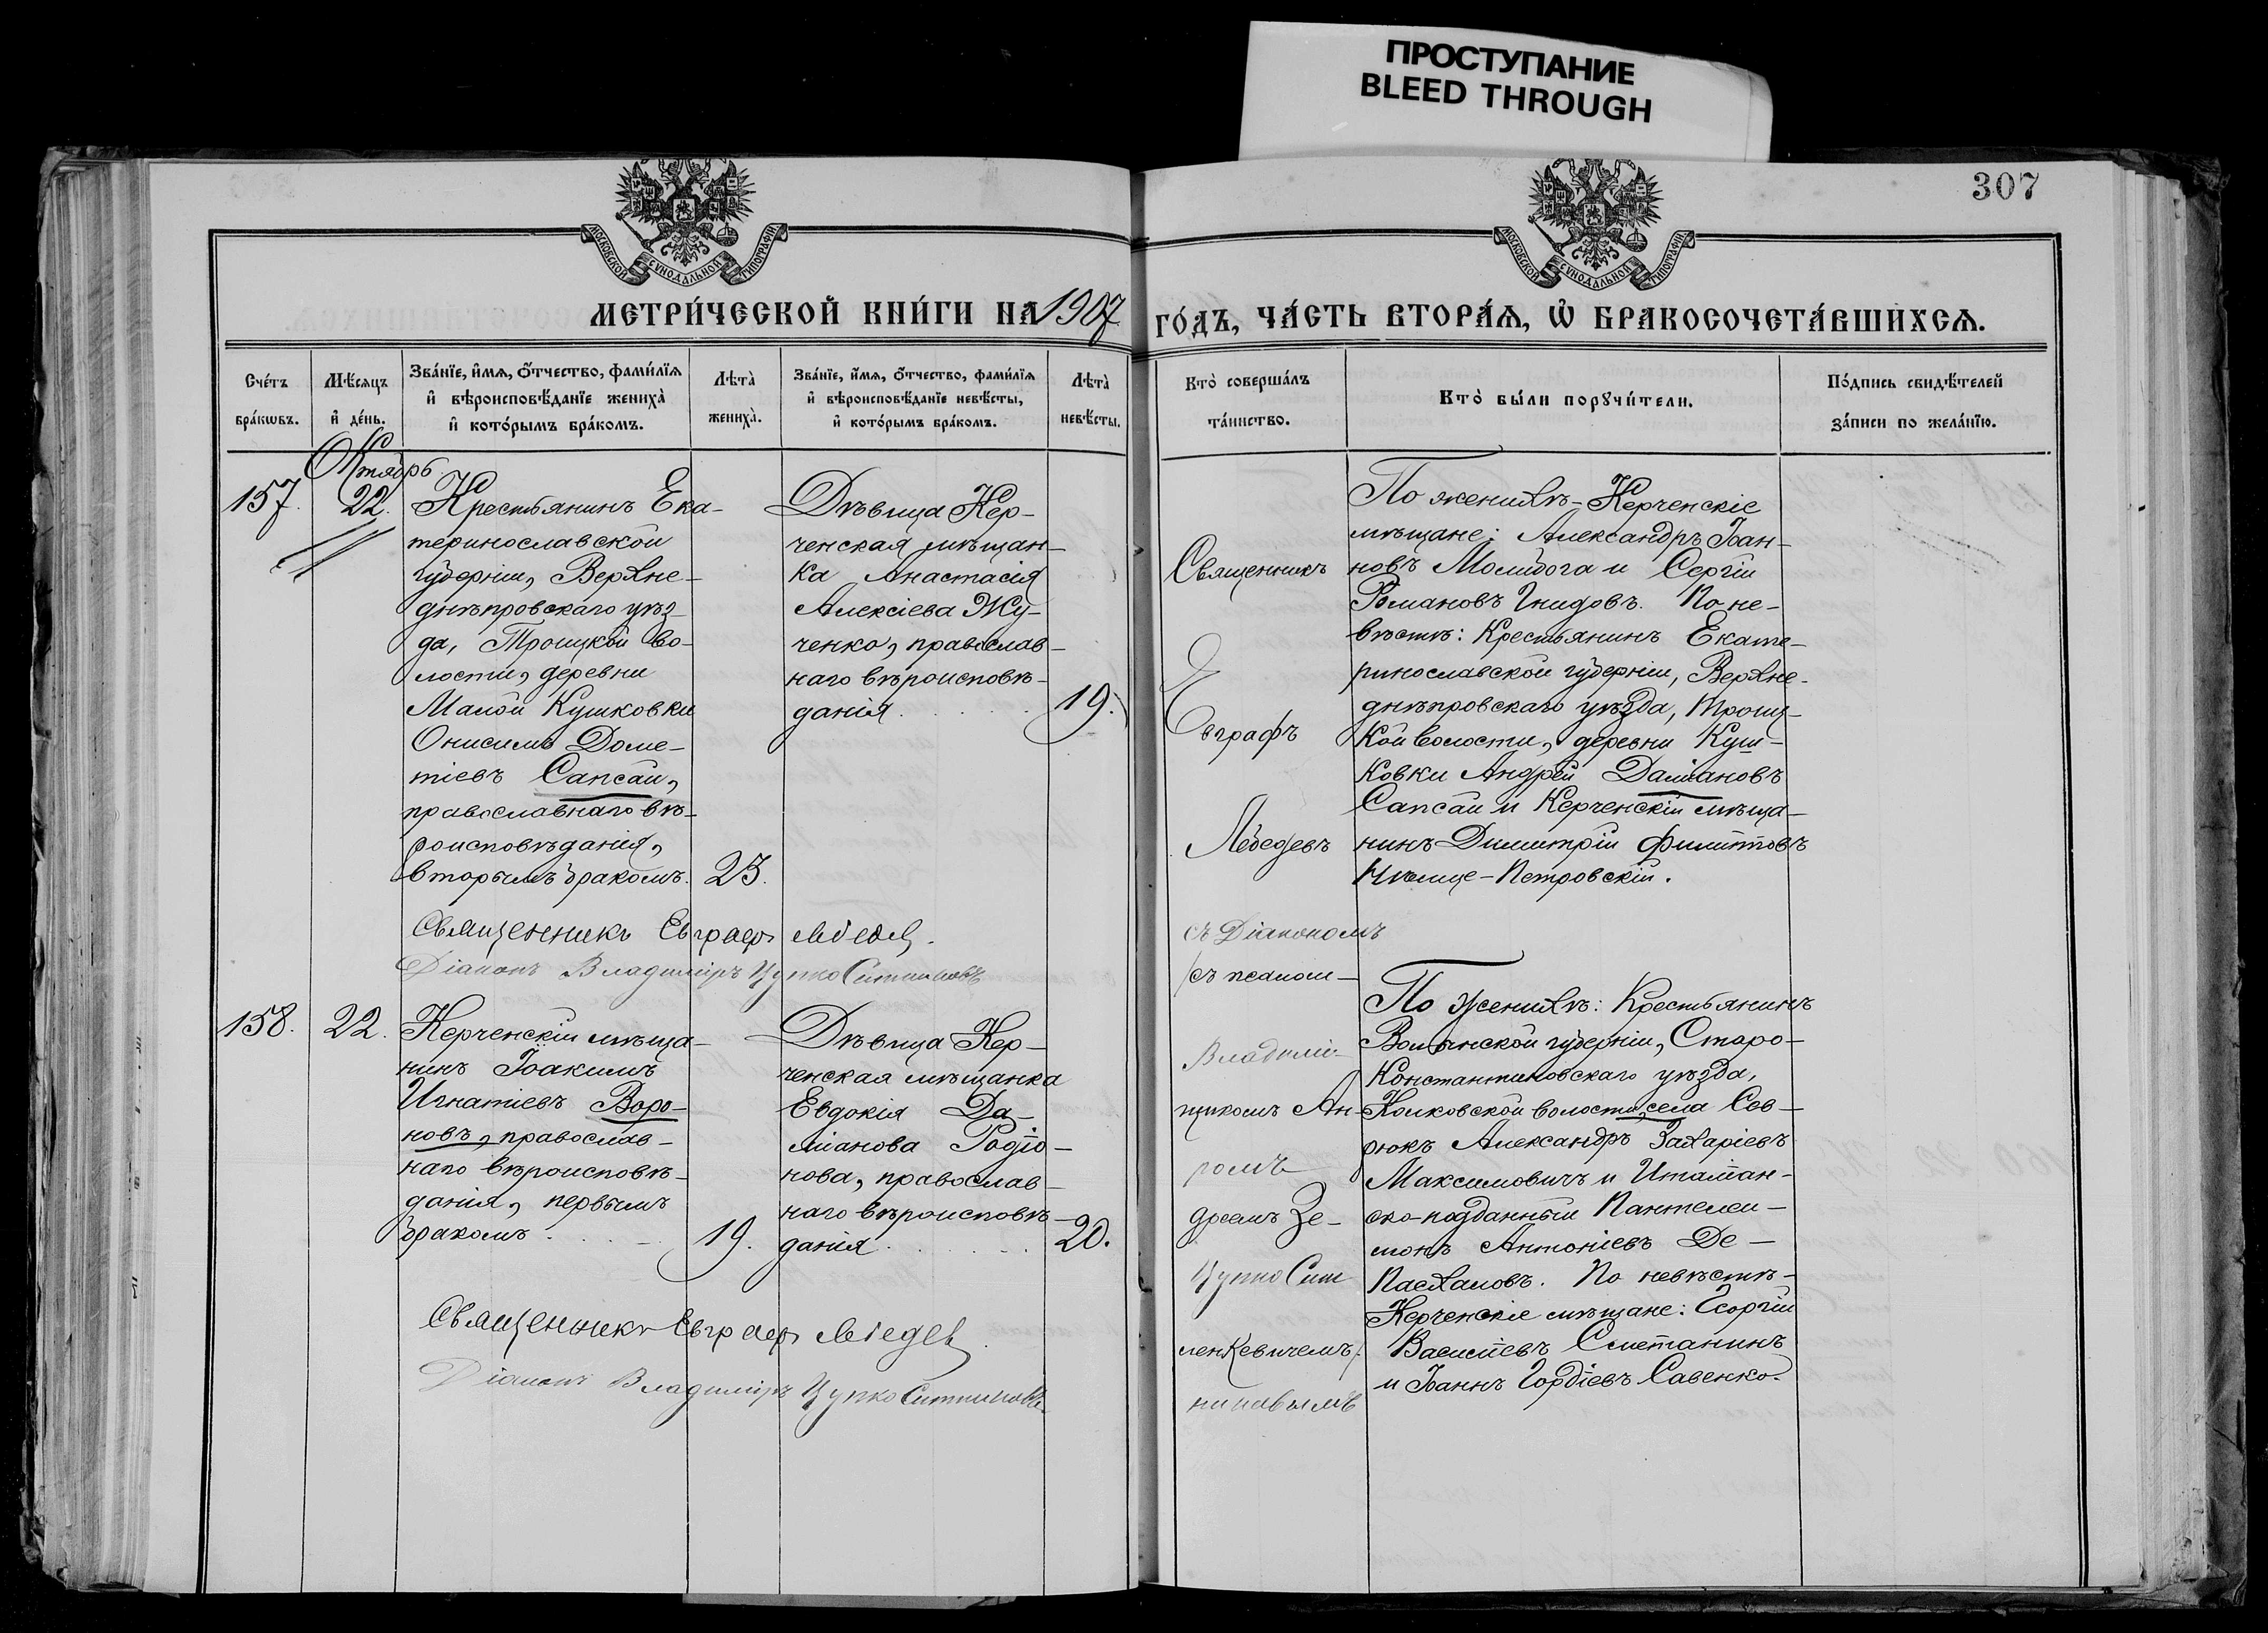 ПРОСТУПАНИЕ
BLEED THROUGH
307
МОСКОВСКОЙ СѴНОДАЛЬНОЙ ТИПОГРАФІИ
МОСКОВСКОЙ СѴНОДАЛЬНОЙ ТИПОГРАФІИ
МЕТРИ́ЧЕСКОЙ КНИ́ГИ НА 1907 ГО́ДЪ, ЧА́СТЬ ВТОРА́Я, Ѡ҆ БРАКОСОЧЕТА́ВШИХСѦ.
Сче́тъ
бра́кѡвъ.
Мѣ́сяцъ
и҆ де́нь.
Зва́нїе, и҆́мѧ, ѻ҆́тчество, фами́лїѧ
и҆ вѣроисповѣ́данїе жениха̀
и҆ кото́рымъ бра́комъ.
Лѣта̀
жениха̀.
Зва́нїе, и҆́мѧ, ѻ҆́тчество, фами́лїѧ
и҆ вѣроисповѣ́данїе невѣ́сты,
и҆ кото́рымъ бра́комъ.
Лѣта̀
невѣ́сты.
Кто̀ соверша́лъ
та́инство.
Кто̀ бы́ли порꙋчи́тели.
По́дпись свидѣ́телей
за́писи по жела́нїю.
Октябрь
157.
22.
Крестьянинъ Ека-
теринославской
губерніи, Верхне-
днѣпровскаго уѣз-
да, Троицкой во-
лости, деревни
Малой Кушковки
Онисимъ Доме-
тіевъ Сапсай,
православнаго вѣ-
роисповѣданія,
вторымъ бракомъ.
23.
Дѣвица Кер-
ченская мѣщан-
ка Анастасія
Алексіева Жу-
ченко, православ-
наго вѣроисповѣ-
данія.
19.
Священникъ
Евграфъ
Лебедевъ
съ Діакономъ
съ псалом-
Владимі-
щикомъ Ан-
ромъ
дреемъ Зе-
Цупко Сит
ленкевичемъ.
никовымъ
По женихѣ-Керченскіе
мѣщане: Александръ Іоан-
новъ Молибога и Сергій
Романовъ Гнидовъ. По не-
вѣстѣ: Крестьянинъ Екате-
ринославской губерніи, Верхне-
днѣпровскаго уѣзда, Троиц-
кой волости, деревни Куш-
ковки Андрей Даміановъ
Сапсай и Керченскій мѣща-
нинъ Димитрій Филипповъ
-Петровскій.
Священникъ Евграфъ Лебедевъ.
Діаконъ Владиміръ Цупко Ситниковъ
158.
22.
Керченскій мѣща-
нинъ Іоакимъ
Игнатіевъ Воро-
новъ, православ-
наго вѣроисповѣ-
данія, первымъ
бракомъ.
19.
Дѣвица Кер-
ченская мѣщанка
Евдокія Да-
міанова Родіо-
нова, православ-
наго вѣроисповѣ-
данія.
20.
По женихѣ: Крестьянинъ
Волынской губерніи, Старо-
Константиновскаго уѣзда,
Колковской волости, села Сев-
рюкъ Александръ Захаріевъ
Максимовичъ и Италіан-
ско-подданный Пантелеи-
монъ Антоніевъ Де-
Пасхаловъ. По невѣстѣ-
Керченскіе мѣщане: Георгій
Василіевъ Сметанинъ
и Іоаннъ Гордіевъ Савенко.
Священникъ Евграфъ Лебедевъ.
Діаконъ Владиміръ Цупко Ситниковъ